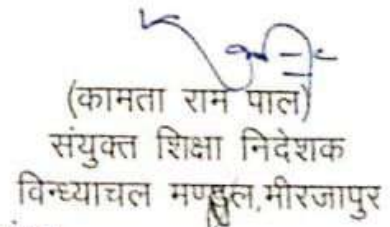 (कामता राम पाल)
संयुक्त शिक्षा निदेशक
विन्ध्याचल मण्डल,मीरजापुर